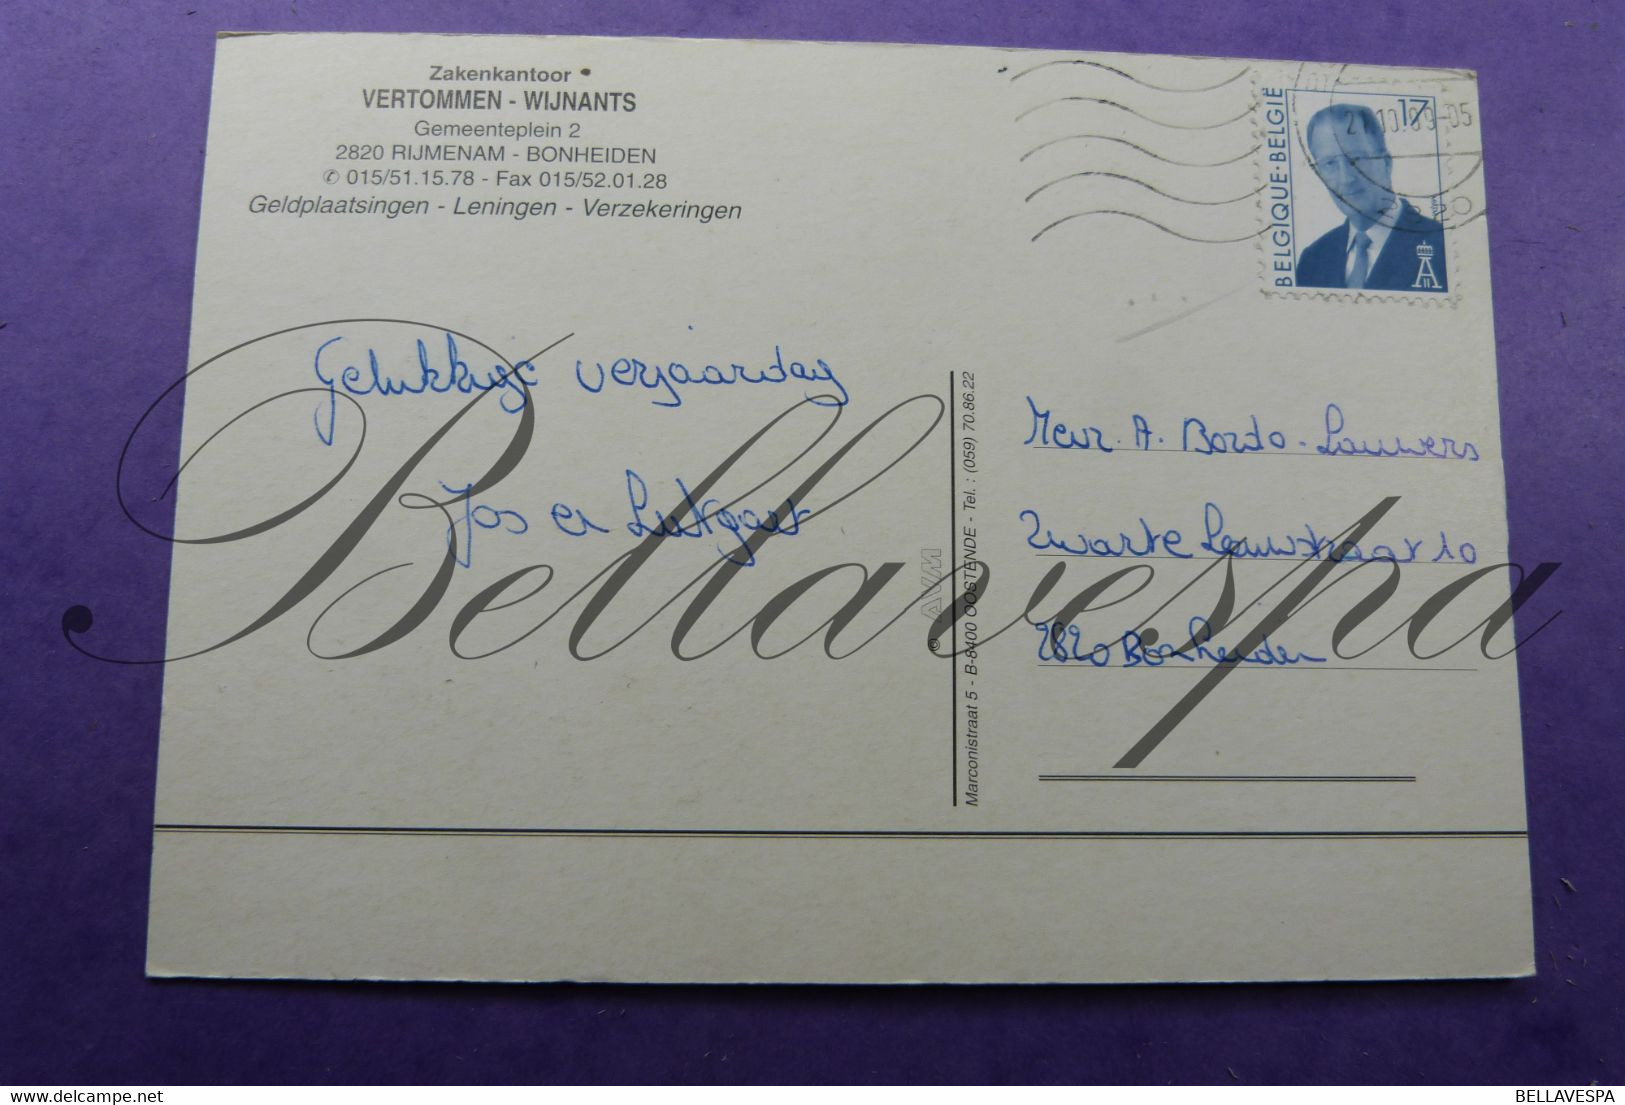 Zakenkantoor
VERTOMMEN - WIJNANTS
Gemeenteplein 2
2820 RIJMENAM - BONHEIDEN
✆ 015/51.15.78 - Fax 015/52.01.28
Geldplaatsingen - Leningen - Verzekeringen
BELGIQUE·BELGIË
17
Gelukkige verjaardag
Jos en Lutgart
Mevr. A. Bordo - Lauwers
Zwarte Leeuwstraat 10
2820 Bonheiden
© AVM
Marconistraat 5 - B-8400 OOSTENDE - Tel. : (059) 70.86.22
Bellavespa
BELLAVESPA